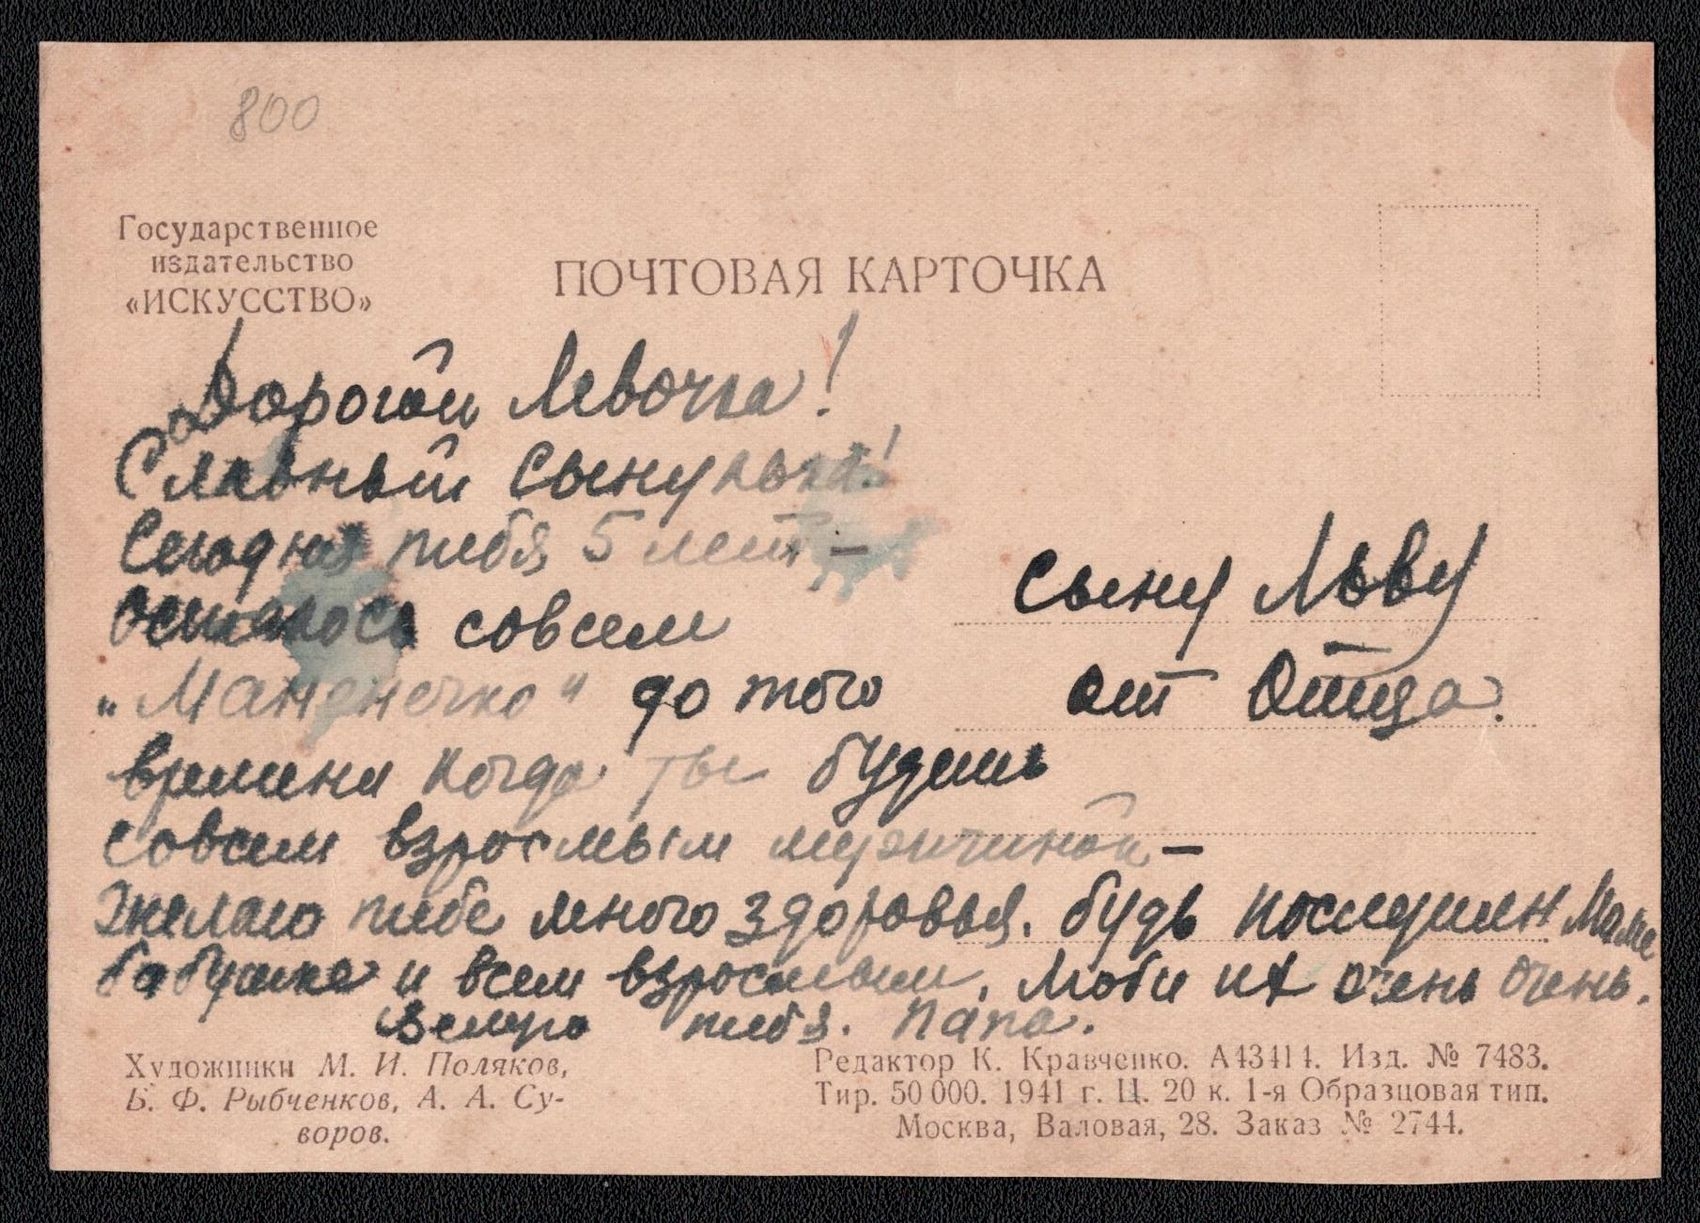 800
Государственное
издательство
«ИСКУССТВО»
ПОЧТОВАЯ КАРТОЧКА
Дорогой Левочка!
Славный сынулька!
Сегодня тебя 5 лет –
осталось совсем
„Маненечко" до того
времени когда ты будешь
совсем взрослым мужчиной –
Желаю тебе много здоровья. будь послушен Маме
бабушке и всем взрослым. Люби их очень очень.
тебя. Папа.
сыну Льву
от Отца.
Художники М. И. Поляков,
Б. Ф. Рыбченков, А. А. Су-
воров.
Редактор К. Кравченко. А43414. Изд. № 7483.
Тир. 50 000. 1941 г. Ц. 20 к. 1-я Образцовая тип.
Москва, Валовая, 28. Заказ № 2744.